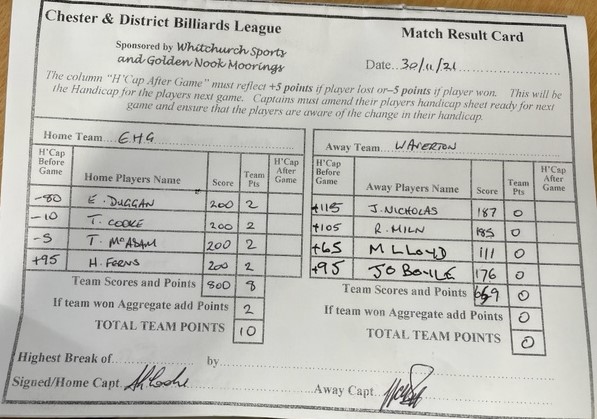 Chester & District Billiards League
Match Result Card
Sponsored by Whitchurch Sports
and Golden Nook Moorings
Date 30/11/21
The column "H'Cap After Game" must reflect +5 points if player lost or–5 points if player won. This will be
the Handicap for the players next game. Captains must amend their players handicap sheet ready for next
game and ensure that the players are aware of the change in their handicap.
Home Team EHG
H'Cap Before Game Home Players Name Score Team Pts H'Cap After Game
-80 E. DUGGAN 200 2
-10 T. COOKE 200 2
-5 T. McADAM 200 2
+95 H. FERNS 200 2
Team Scores and Points 800 8
If team won Aggregate add Points 2
TOTAL TEAM POINTS 10
Away Team WAVERTON
H'Cap Before Game Away Players Name Score Team Pts H'Cap After Game
+115 J. NICHOLAS 187 0
+105 R. MILN 185 0
+65 M LLOYD 111 0
+95 JO BOYLE 176 0
Team Scores and Points 659 0
If team won Aggregate add Points 0
TOTAL TEAM POINTS 0
Highest Break of by
Signed/Home Capt.
Away Capt.